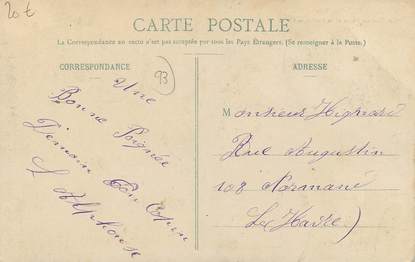 20 €
CARTE POSTALE
La Correspondance au recto n'est pas acceptée par tous les Pays Étrangers. (Se renseigner à la Poste.)
CORRESPONDANCE
ADRESSE
93
Une
Bonne Poignée
Demain Ton Copin
Alphonse
Monsieur
Rue Augustin
108 Normand
Le Havre)